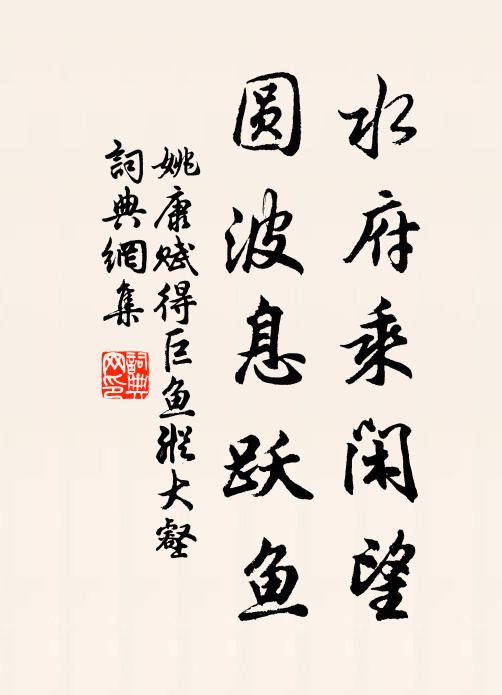 水府乘闲望
圆波息跃鱼
姚康赋得巨鱼纵大壑
詞典網集
詞典網印